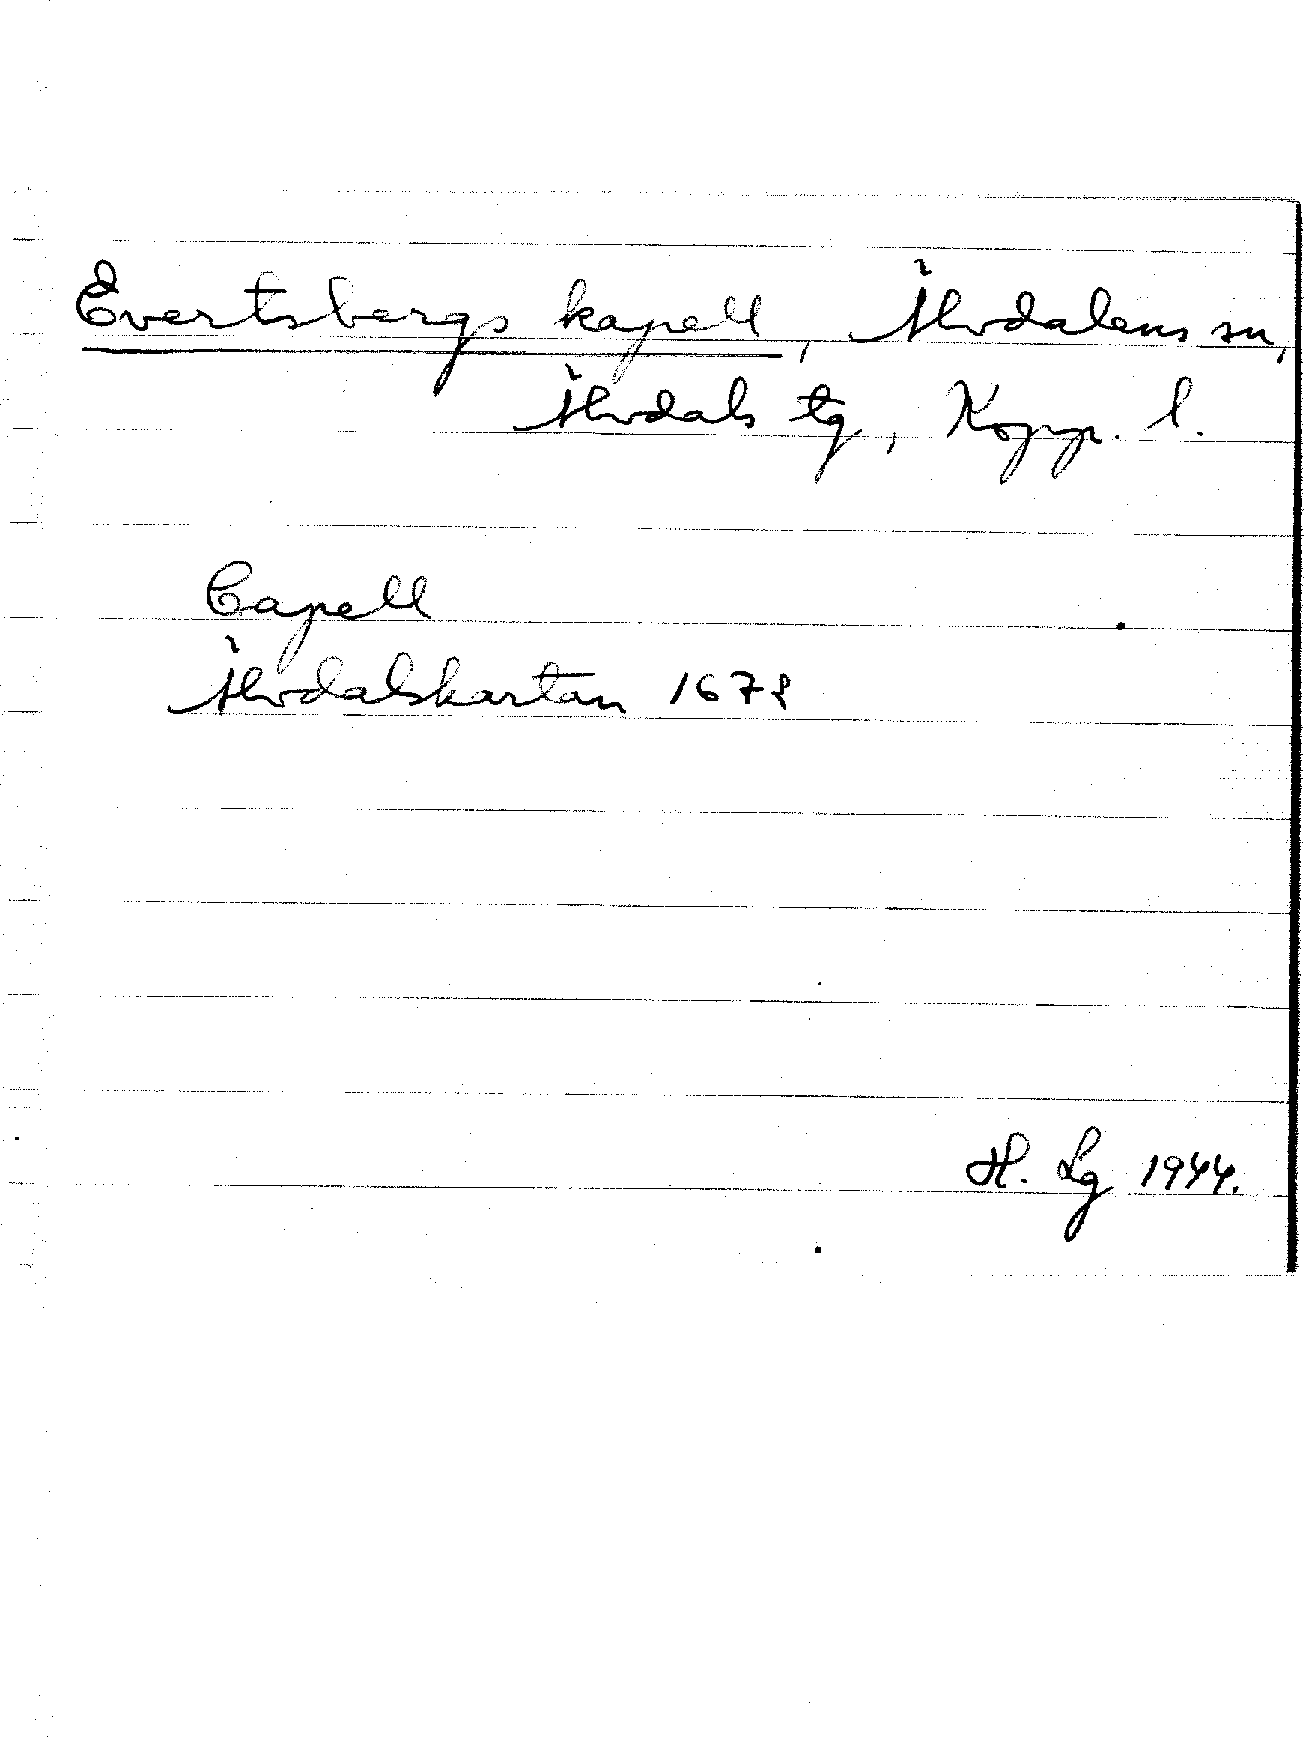 Evertsbergs kapell, Älvdalens sn,
Älvdals tg, Kopp. l.
Capell
Älvdalskartan 1678
H. Lg 1944.